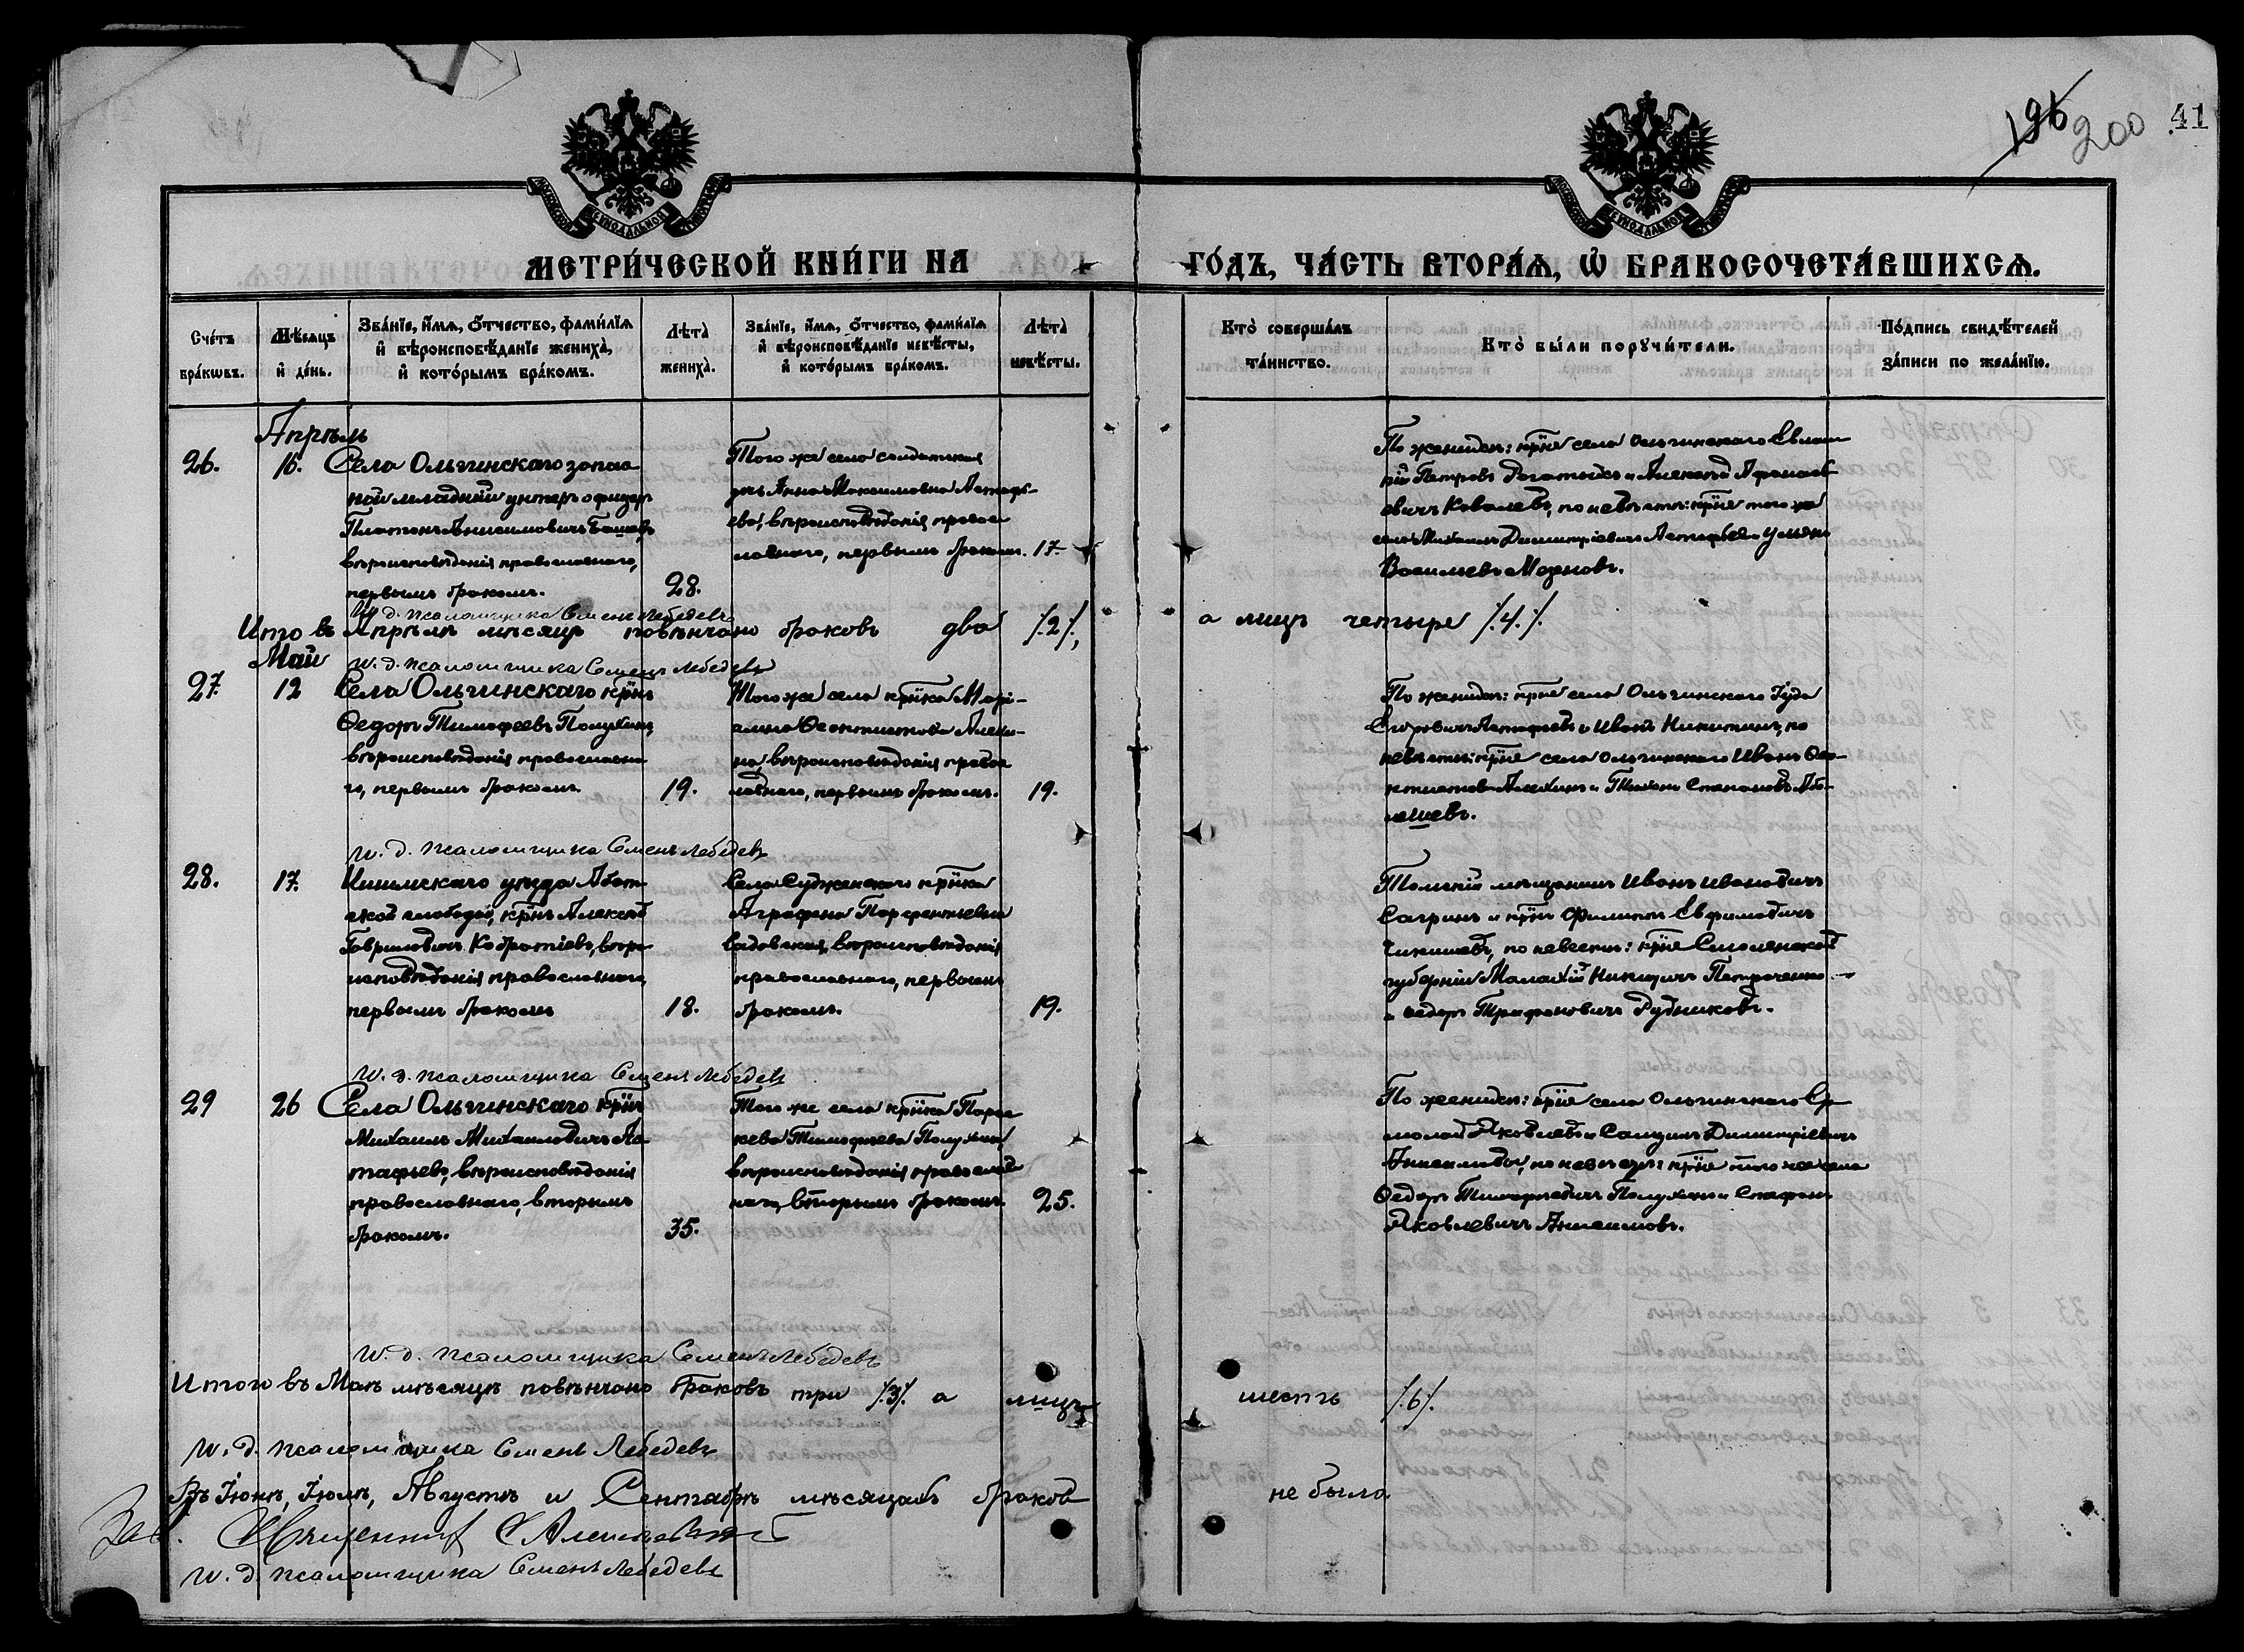 196 200 41
МЕТРИ́ЧЕСКОЙ КНИ́ГИ НА ГО́ДЪ, ЧА́СТЬ ВТОРА́Ѧ, Ѡ҆ БРАКОСОЧЕТА́ВШИХСѦ.
Сче́тъ бра́кѡвъ.
Мѣ́сѧцъ и҆ де́нь.
Зва́нїе, и҆́мѧ, ѻ҆́тчество, фами́лїѧ
и҆ вѣроисповѣ́данїе жениха̀,
и҆ кото́рымъ бра́комъ.
Лѣта̀ жениха̀.
Зва́нїе, и҆́мѧ, ѻ҆́тчество, фами́лїѧ
и҆ вѣроисповѣ́данїе невѣ́сты,
и҆ кото́рымъ бра́комъ.
Лѣта̀ невѣ́сты.
Кто̀ соверша́лъ та́инство.
Кто̀ бы́ли поручи́тели.
По́дпись свидѣ́телей
за́писи по жела́нїю.
Апрѣль
26.
16.
Села Ольгинскаго запас
ной младшій унтеръ офицеръ
Платонъ Анисимовичъ
вѣроисповѣданія православнаго,
первымъ бракомъ.
28.
Того же села солдатская
дочь Анна Максимовна Астафь-
ева, вѣроисповѣданія правос
лавнаго, первымъ бракомъ.
17.
По женихѣ: крне села Ольгинскаго
Петровъ и Алексѣй
Ковалевъ, по невѣстѣ: крне того же
села Михаилъ Димитріевичъ Астафьевъ и
Васильевъ
И. д. псаломщика Семенъ Лебедевъ
Итого въ Апрѣлѣ мѣсяцѣ повѣнчано браковъ два /.2./, а лицъ четыре /.4./.
Май
И. д. псаломщика Семенъ Лебедевъ
27.
12
Села Ольгинскаго крнъ
Ѳедоръ Тимофеевъ Полухинъ,
вѣроисповѣданія православна
го, первымъ бракомъ.
19.
Того же села крнка Марі-
амна Ѳеоктистова Алехи-
на, вѣроисповѣданія право
лавнаго, первымъ бракомъ.
19.
По женихѣ: крне села Ольгинскаго Іуда
Астафьевъ и Иванъ Никитинъ, по
невѣстѣ: крне села Ольгинскаго Иванъ Ѳео-
ктистовъ Алехинъ и Тихонъ Степановъ
И. д. псаломщика Семенъ Лебедевъ
28.
17.
Ишимскаго уѣзда Абат-
ской слободы, крнъ Алексѣй
Гавриловичъ вѣро
исповѣданія православнаго
первымъ бракомъ
18.
Села Судженскаго крнка
Аграфена Парфентьевна
Садовская, вѣроисповѣданія
православнаго, первымъ
бракомъ.
19.
Томскій мѣщанинъ Иванъ Ивановичъ
Сагринъ и крнъ Филиппъ Евфимовичъ
по невестѣ: крне Смоленской
губерніи Малахій Никитичъ Петроченко
и Ѳедоръ Трифоновичъ Рудниковъ.
И. д. псаломщика Семенъ Лебедевъ
29
26
Села Ольгинскаго крнъ
Михаилъ Михаиловичъ Ас
тафьевъ, вѣроисповѣданія
православнаго, вторымъ
бракомъ.
35.
Того же села крнка Парас
кева Тимофеева Полухина
вѣроисповѣданія православ
наго, вторымъ бракомъ.
25.
По женихѣ: крне села Ольгинскаго Ер
молай Яковлевъ и Самуилъ Димитріевичъ
Анисимовы, по невѣстѣ: крне того же села
Ѳедоръ Тимофеевичъ Полухинъ и Стефанъ
Яковлевичъ Анисимовъ.
И. д. псаломщика Семенъ Лебедевъ
Итого въ Маѣ мѣсяцѣ повѣнчано браковъ три /.3./. а лицъ шесть /.6./.
И. д. псаломщика Семенъ Лебедевъ
Въ Іюнѣ, Іюлѣ, Августѣ и Сентябрѣ мѣсяцахъ браковъ не было.
Зав. Священникъ
И. д. псаломщика Семенъ Лебедевъ